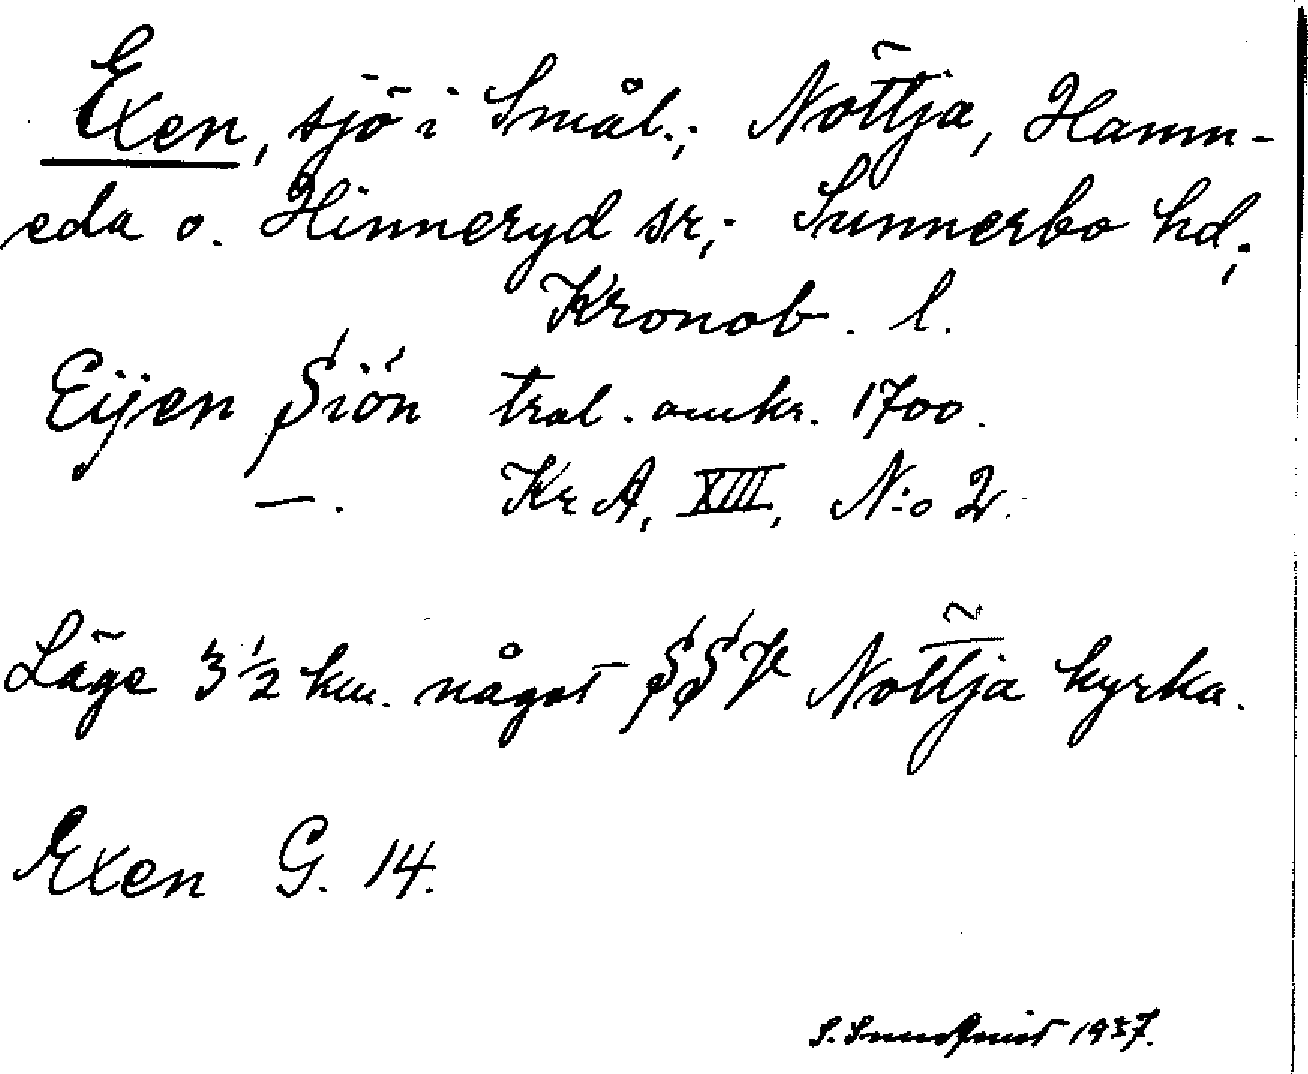 Exen, sjö i Smål.; Nöttja, Hamn-
eda o. Hinneryd sr; Sunnerbo hd;
Kronob. l.
Eijen Siön tral. omkr. 1700.
—. Kr A, XIII, N:o 2.
Läge 3 1/2 km. något SSV Nöttja kyrka.
Exen G. 14.
S. Sundqvist 1937.